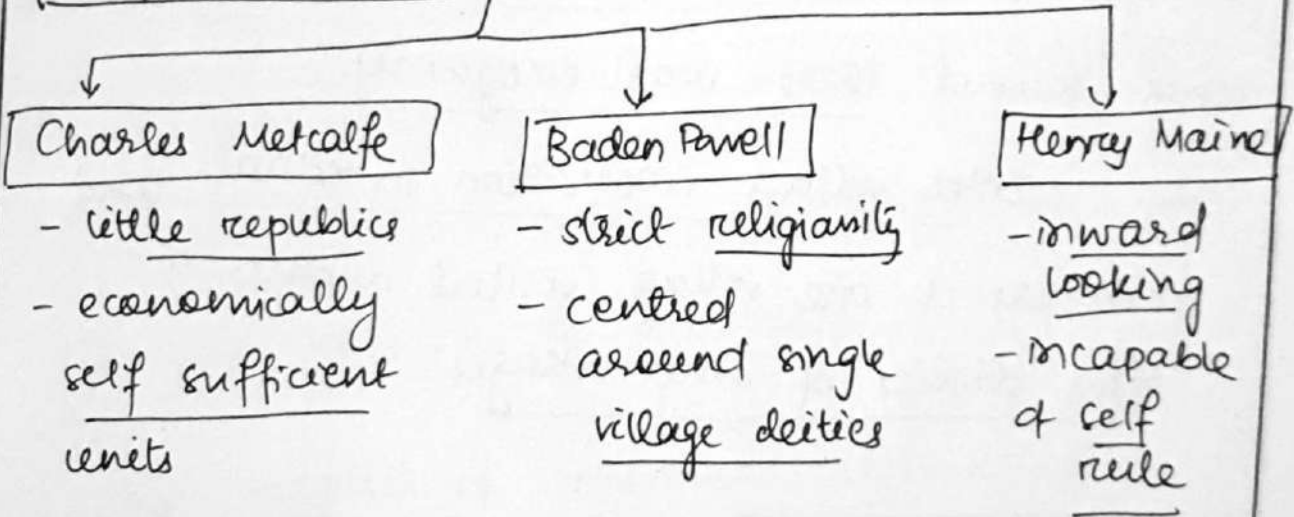 Charles Metcalfe
- little republics
- economically
self sufficient
units
Baden Powell
- strict religiosity
- centred
around single
village deities
Henry Maine
- inward
looking
- incapable
of self
rule